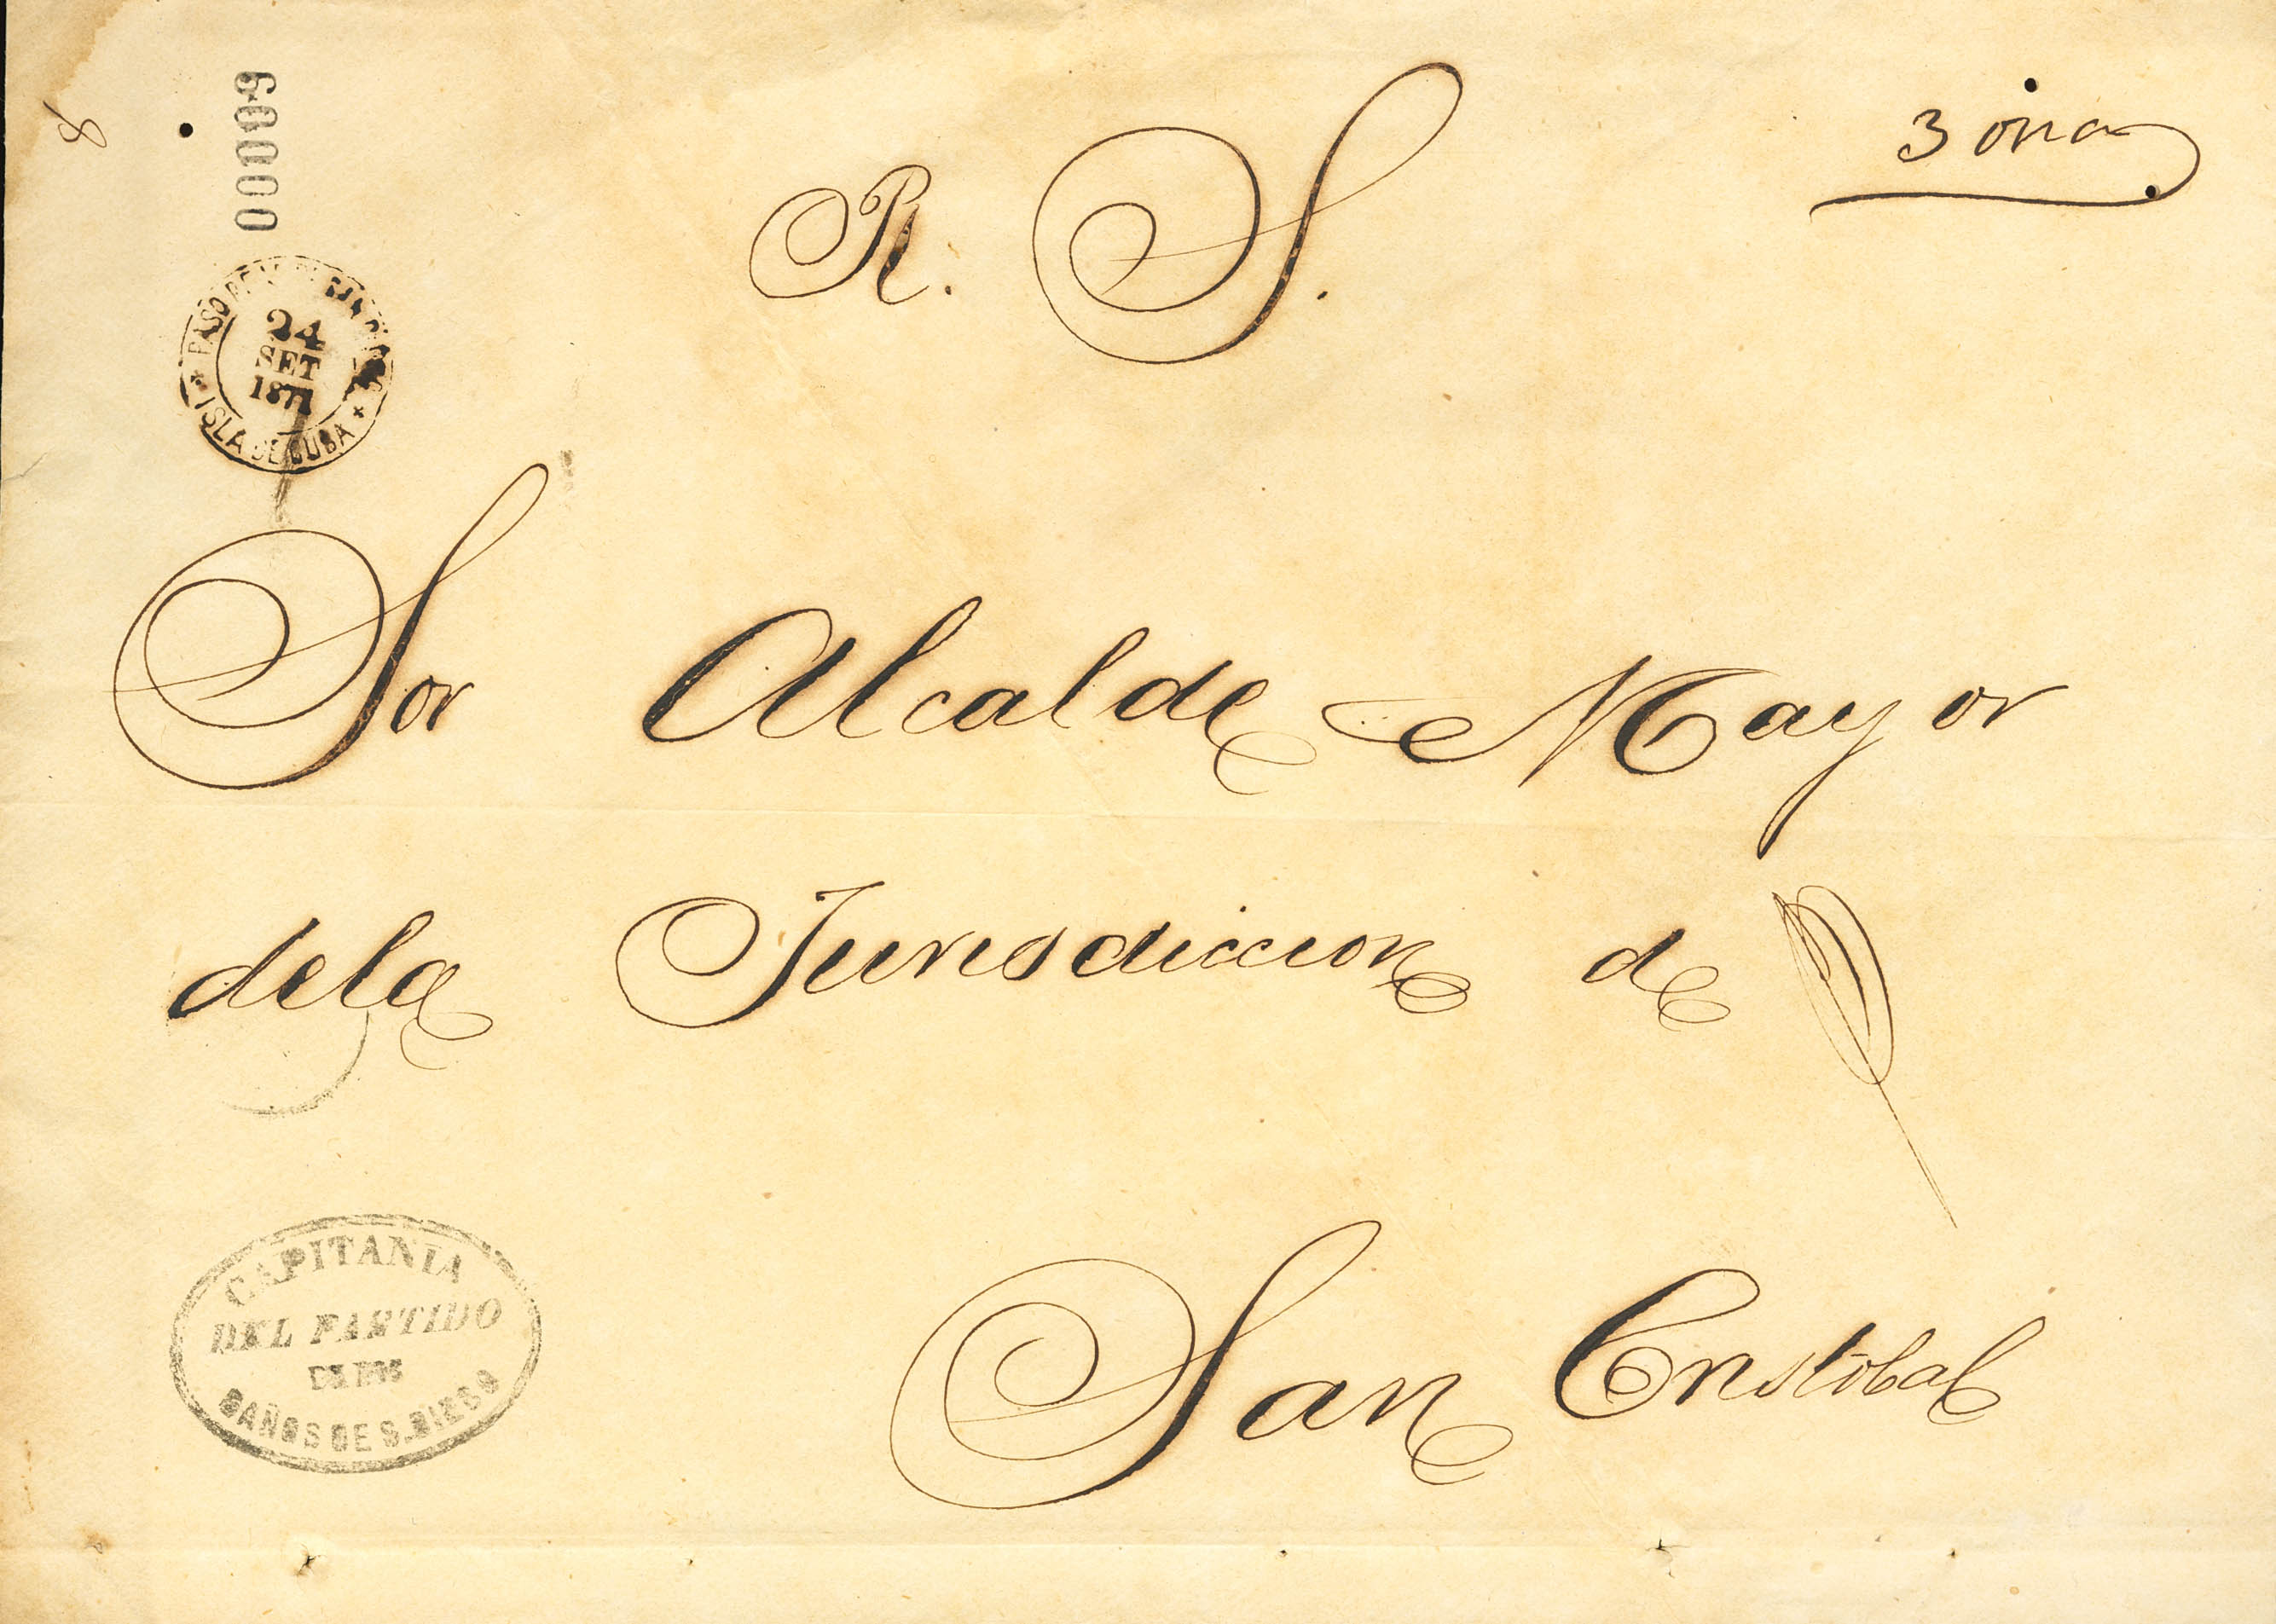 8
00009
R. S.
3 onza
PASO REAL DE SAN DIEGO
24
SET
1871
ISLA DE CUBA
Sor Alcalde Mayor
dela Jurisdiccion de
San Cristobal
CAPITANIA
DEL PARTIDO
DE LOS
BAÑOS DE S. DIEGO